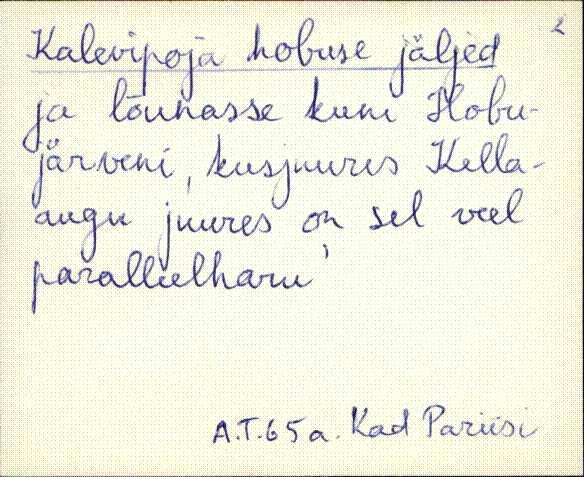 2
Kalevipoja hobuse jäljed
ja lõunasse kuni Hobu-
järveni, kusjuures Kella-
augu juures on sel veel
paralleelharu'
A.T.65a. Kad Pariisi